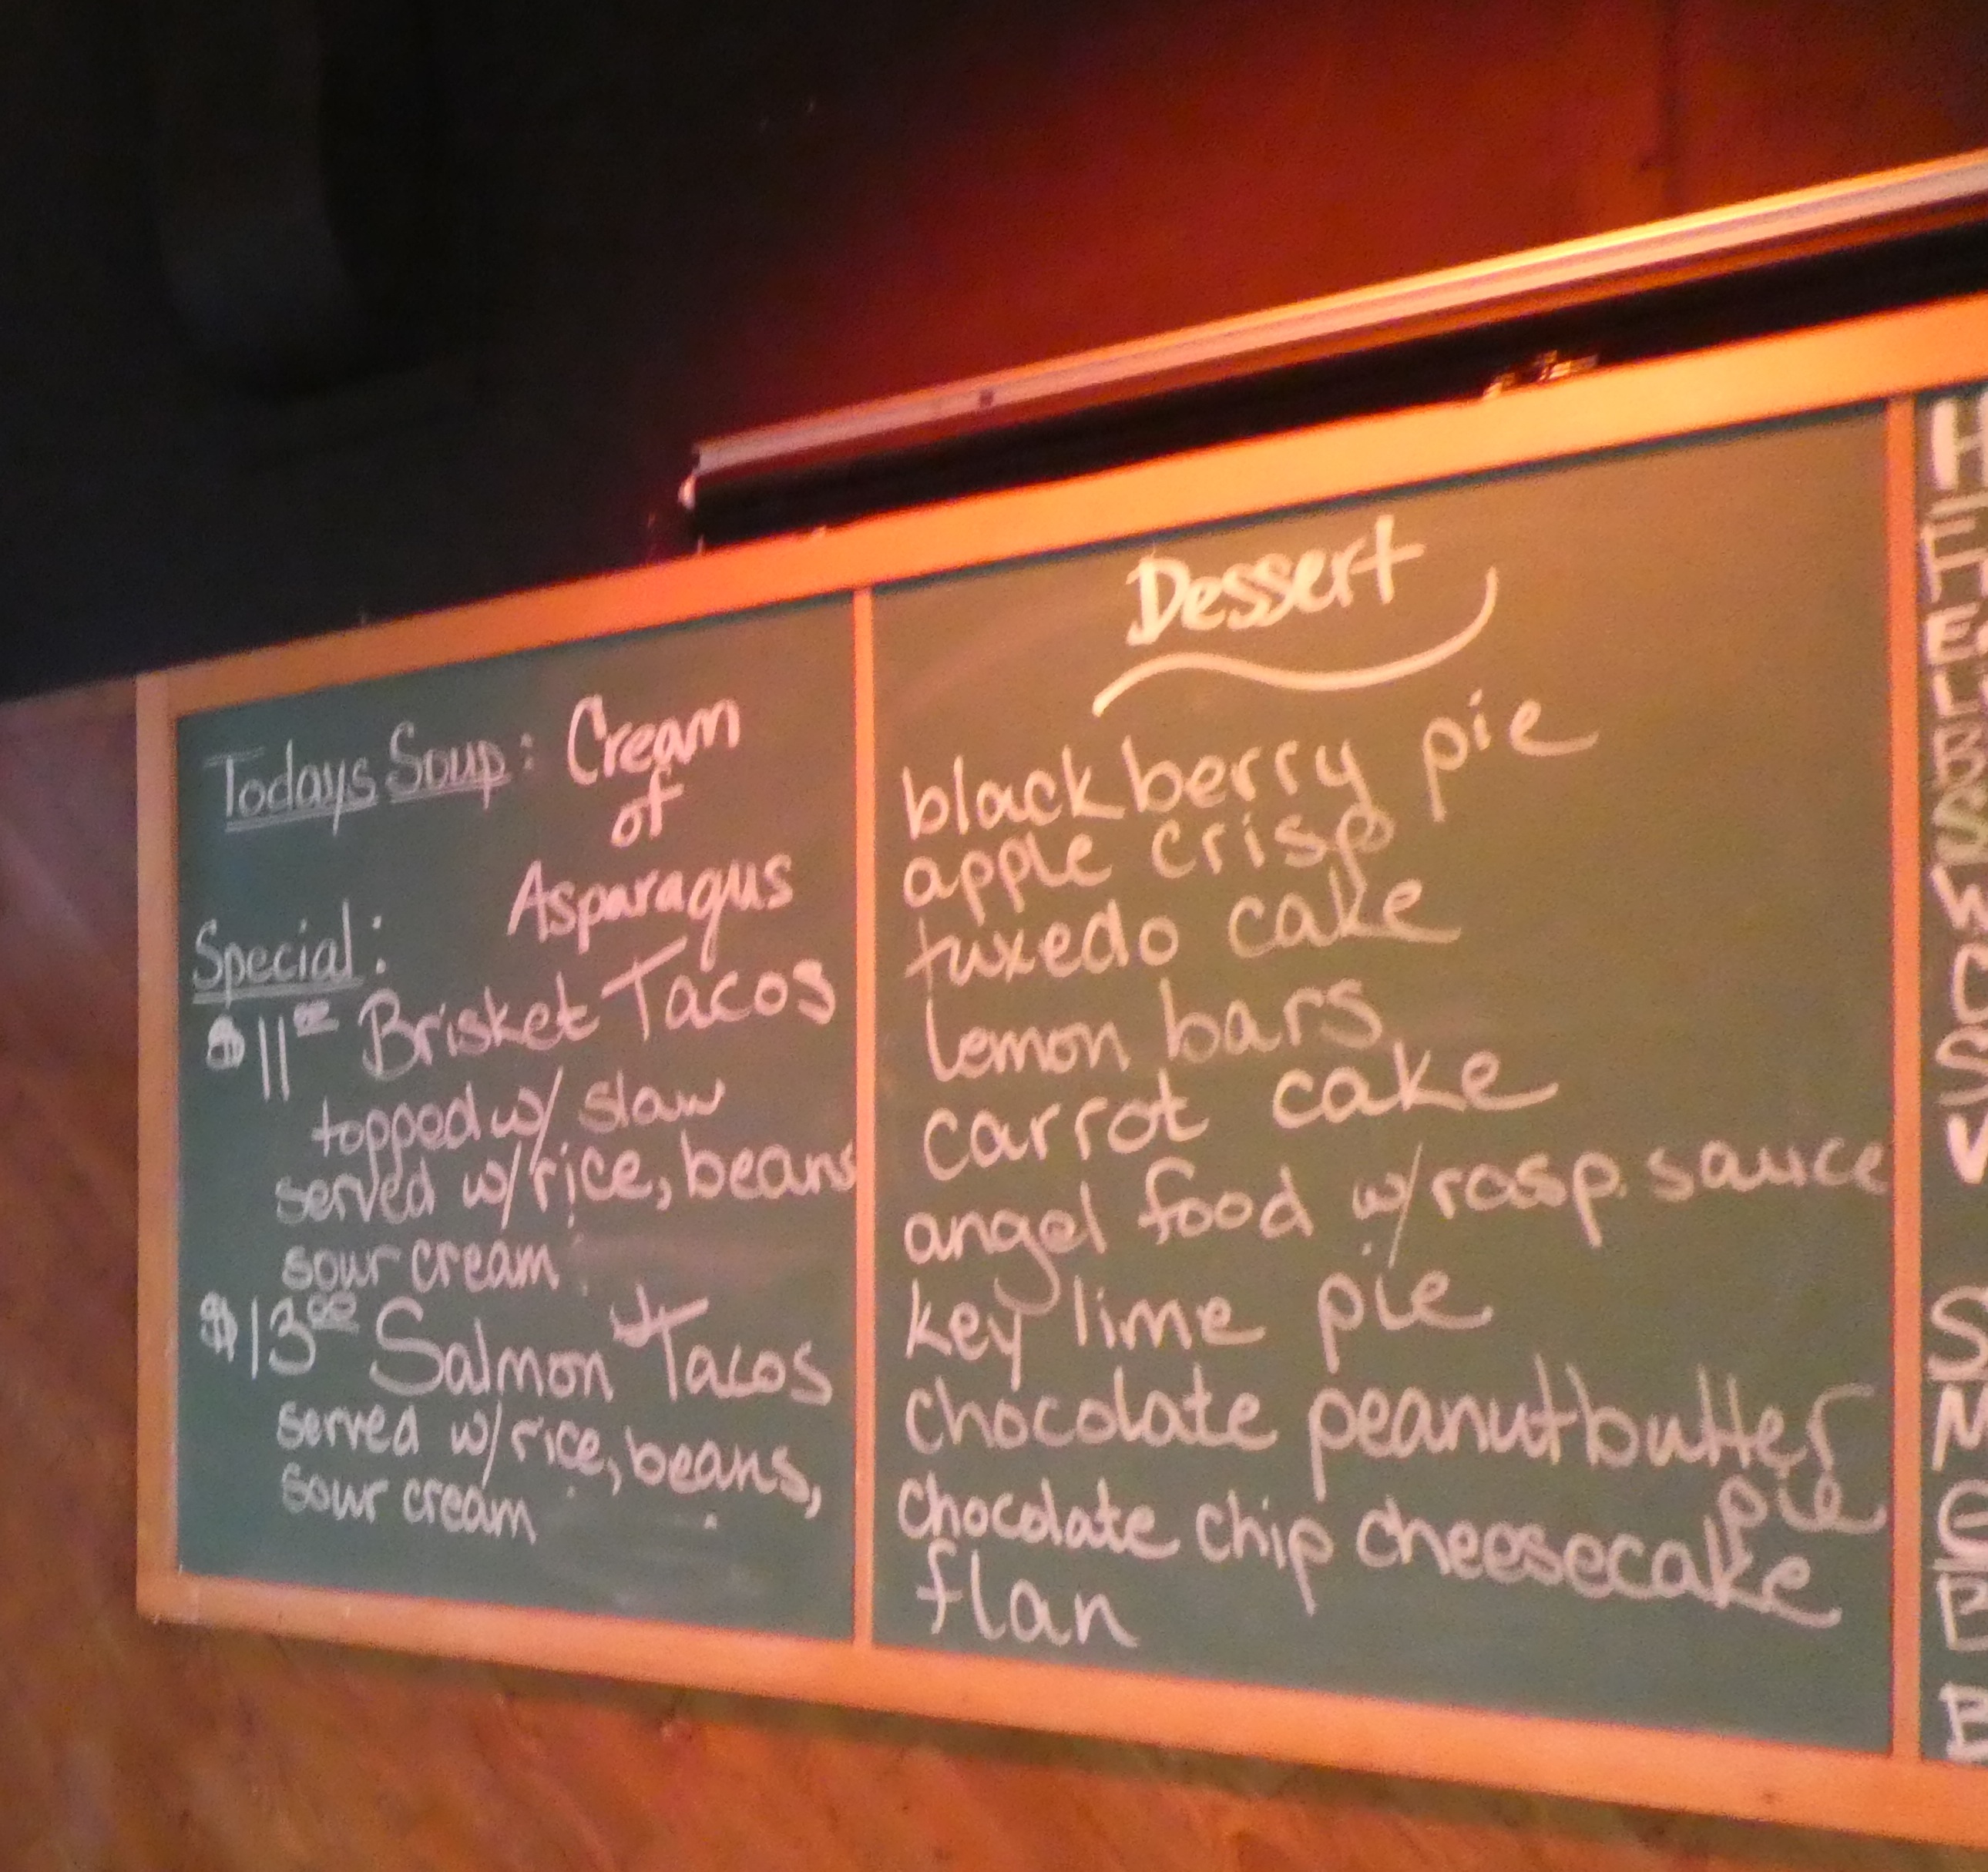 Todays Soup: Cream
of
Asparagus
Special:
$11 00 Brisket Tacos
topped w/ slaw
served w/ rice, beans
sour cream
$13 00 Salmon Tacos
served w/ rice, beans,
sour cream
Dessert
blackberry pie
apple crisp
tuxedo cake
lemon bars
carrot cake
angel food w/ rasp. sauce
key lime pie
chocolate peanutbutter
pie
chocolate chip cheesecake
flan